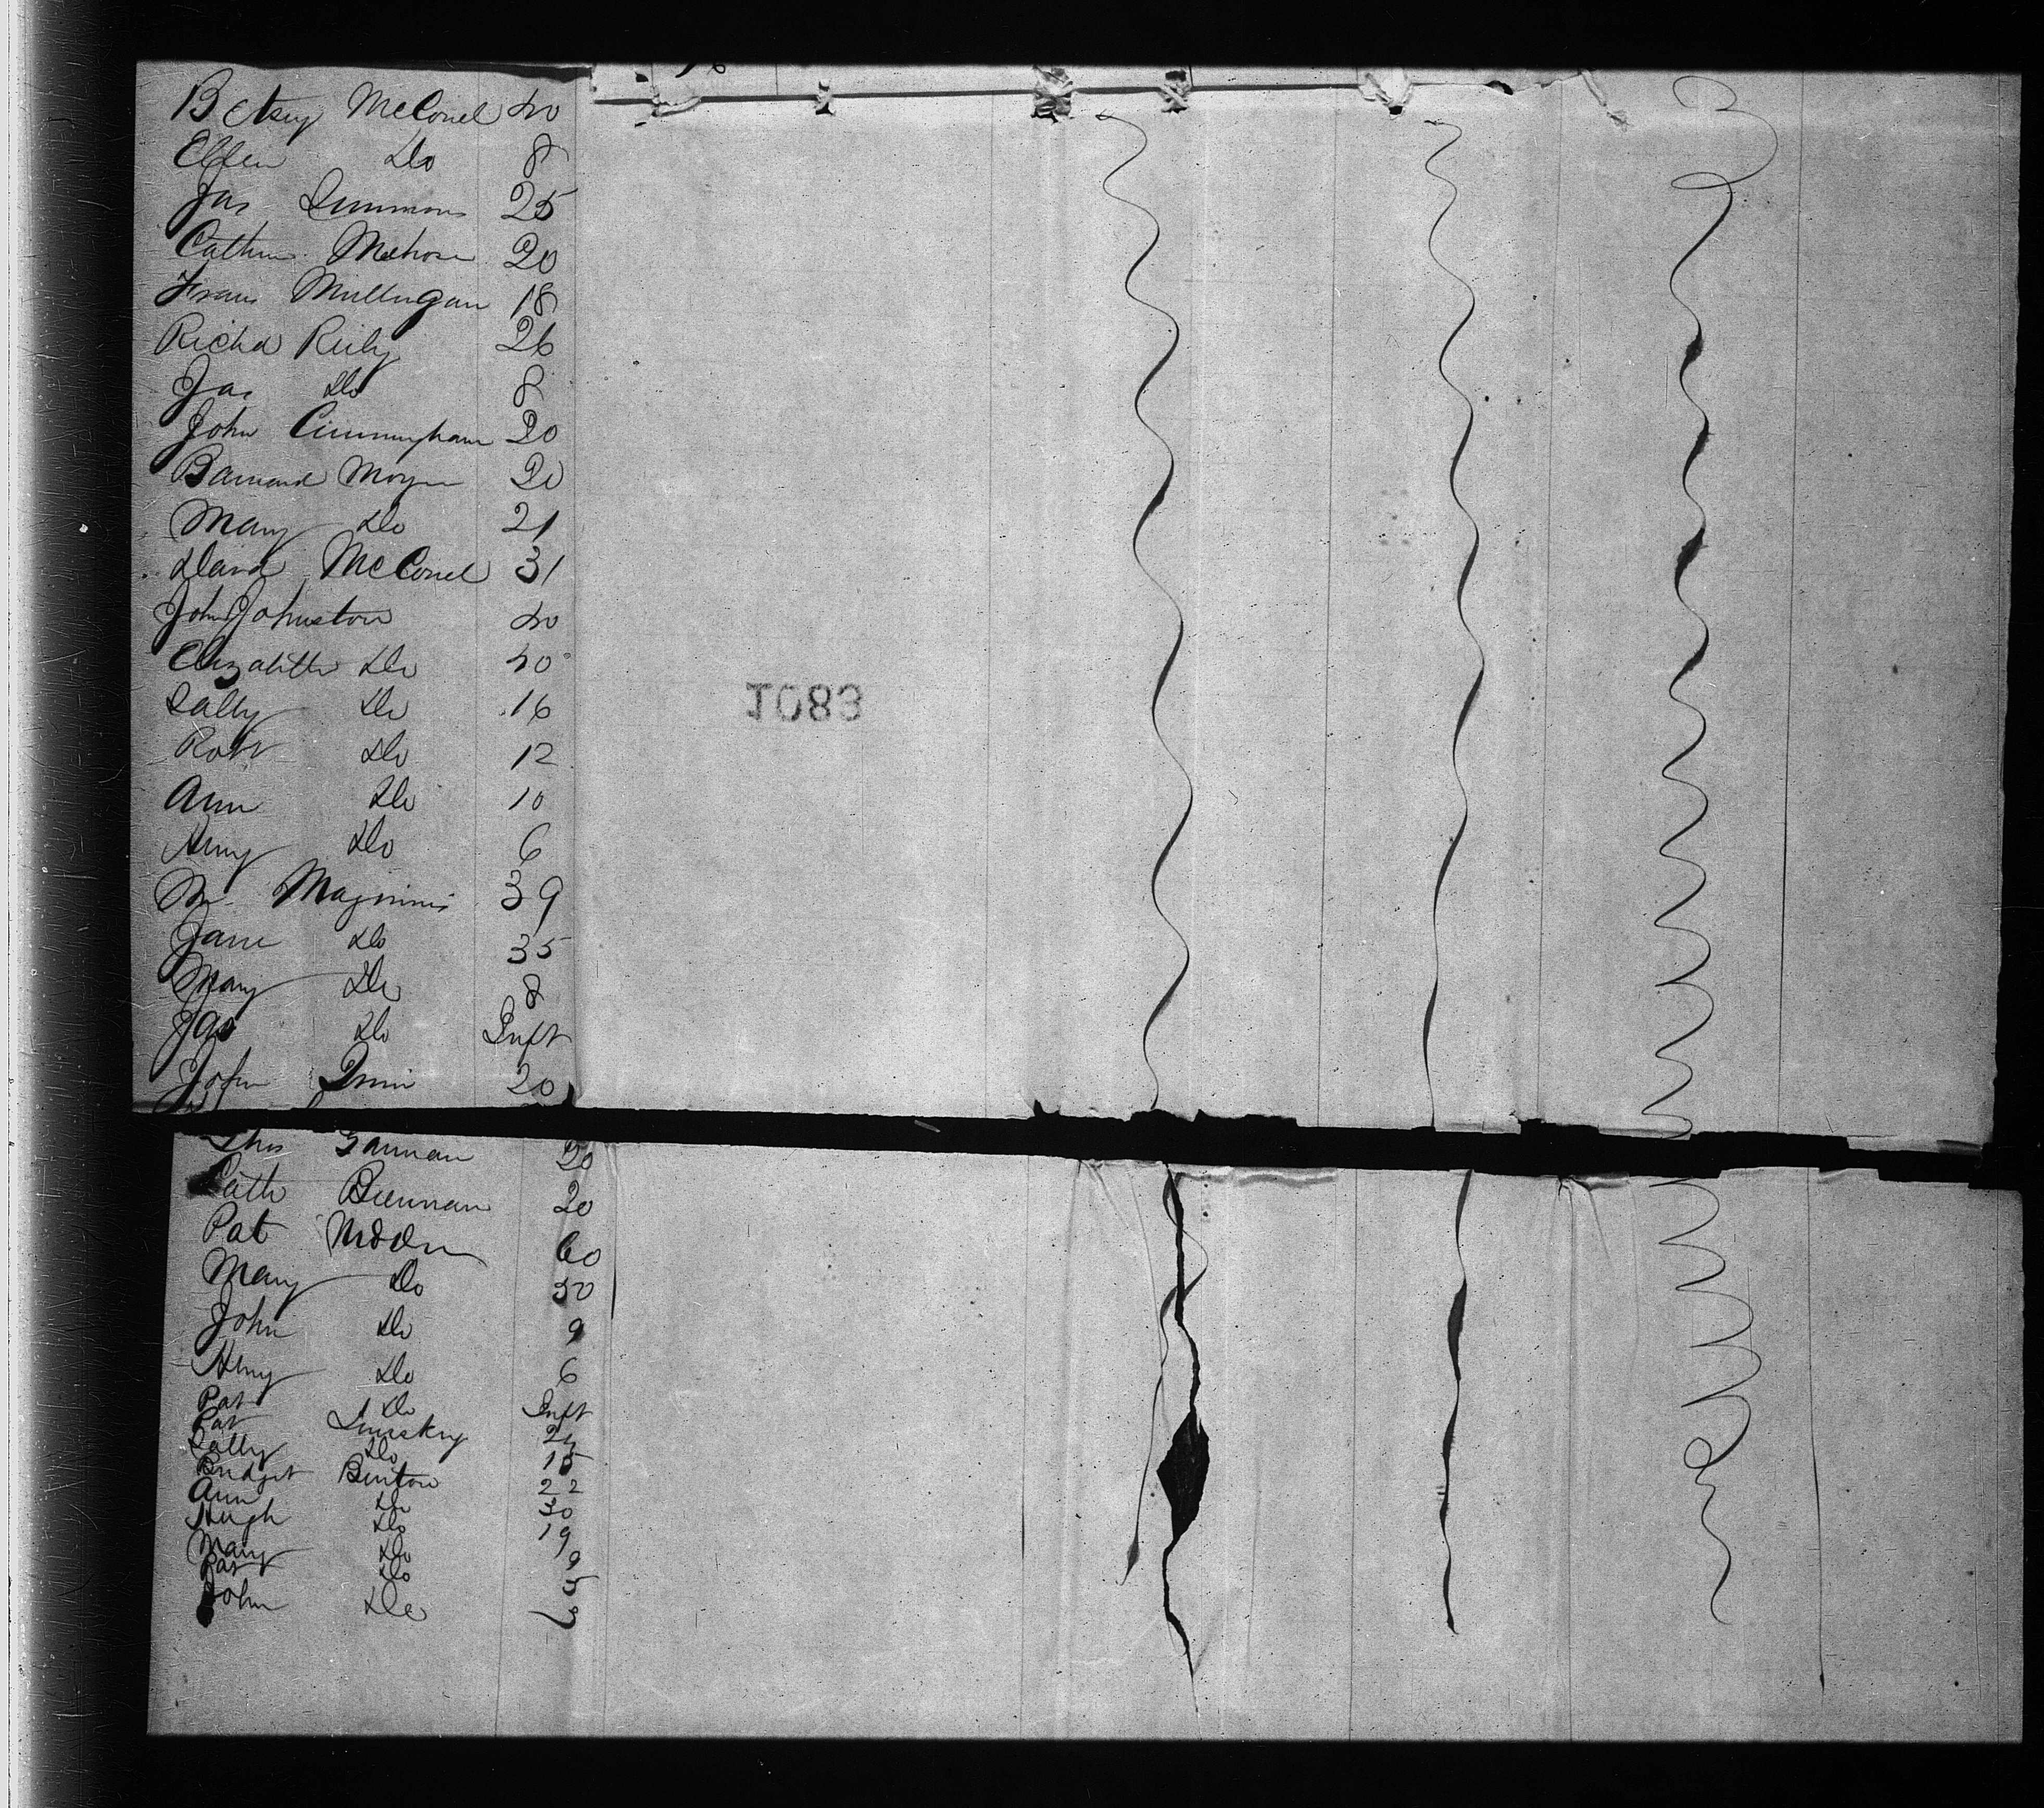 Betsy McConel 40
Ellen Do 8
Jas Simmons 25
Cathn 20
Frans Mullugan 18
Richd Reily 26
Jas Do 8
John Cunningham 20
Barnard 20
Mary Do 21
David McConel 31
John Johnston 40
Elizabeth Do 40
Sally Do 16
Robt Do 12
Ann Do 10
Henry Do 6
Maginnis 39
Jane Do 35
Mary Do 8
Jas Do Inft
John Quin 20
1083
Thos Gannan 20
Cath Brennan 20
Pat 60
Mary Do 30
John Do 9
Henry Do 6
Pat Do Inft
Pat 24
Sally Do 15
Bridget Binton 22
Ann Do 30
Hugh Do 19
Mary Do 9
Pat Do
John Do